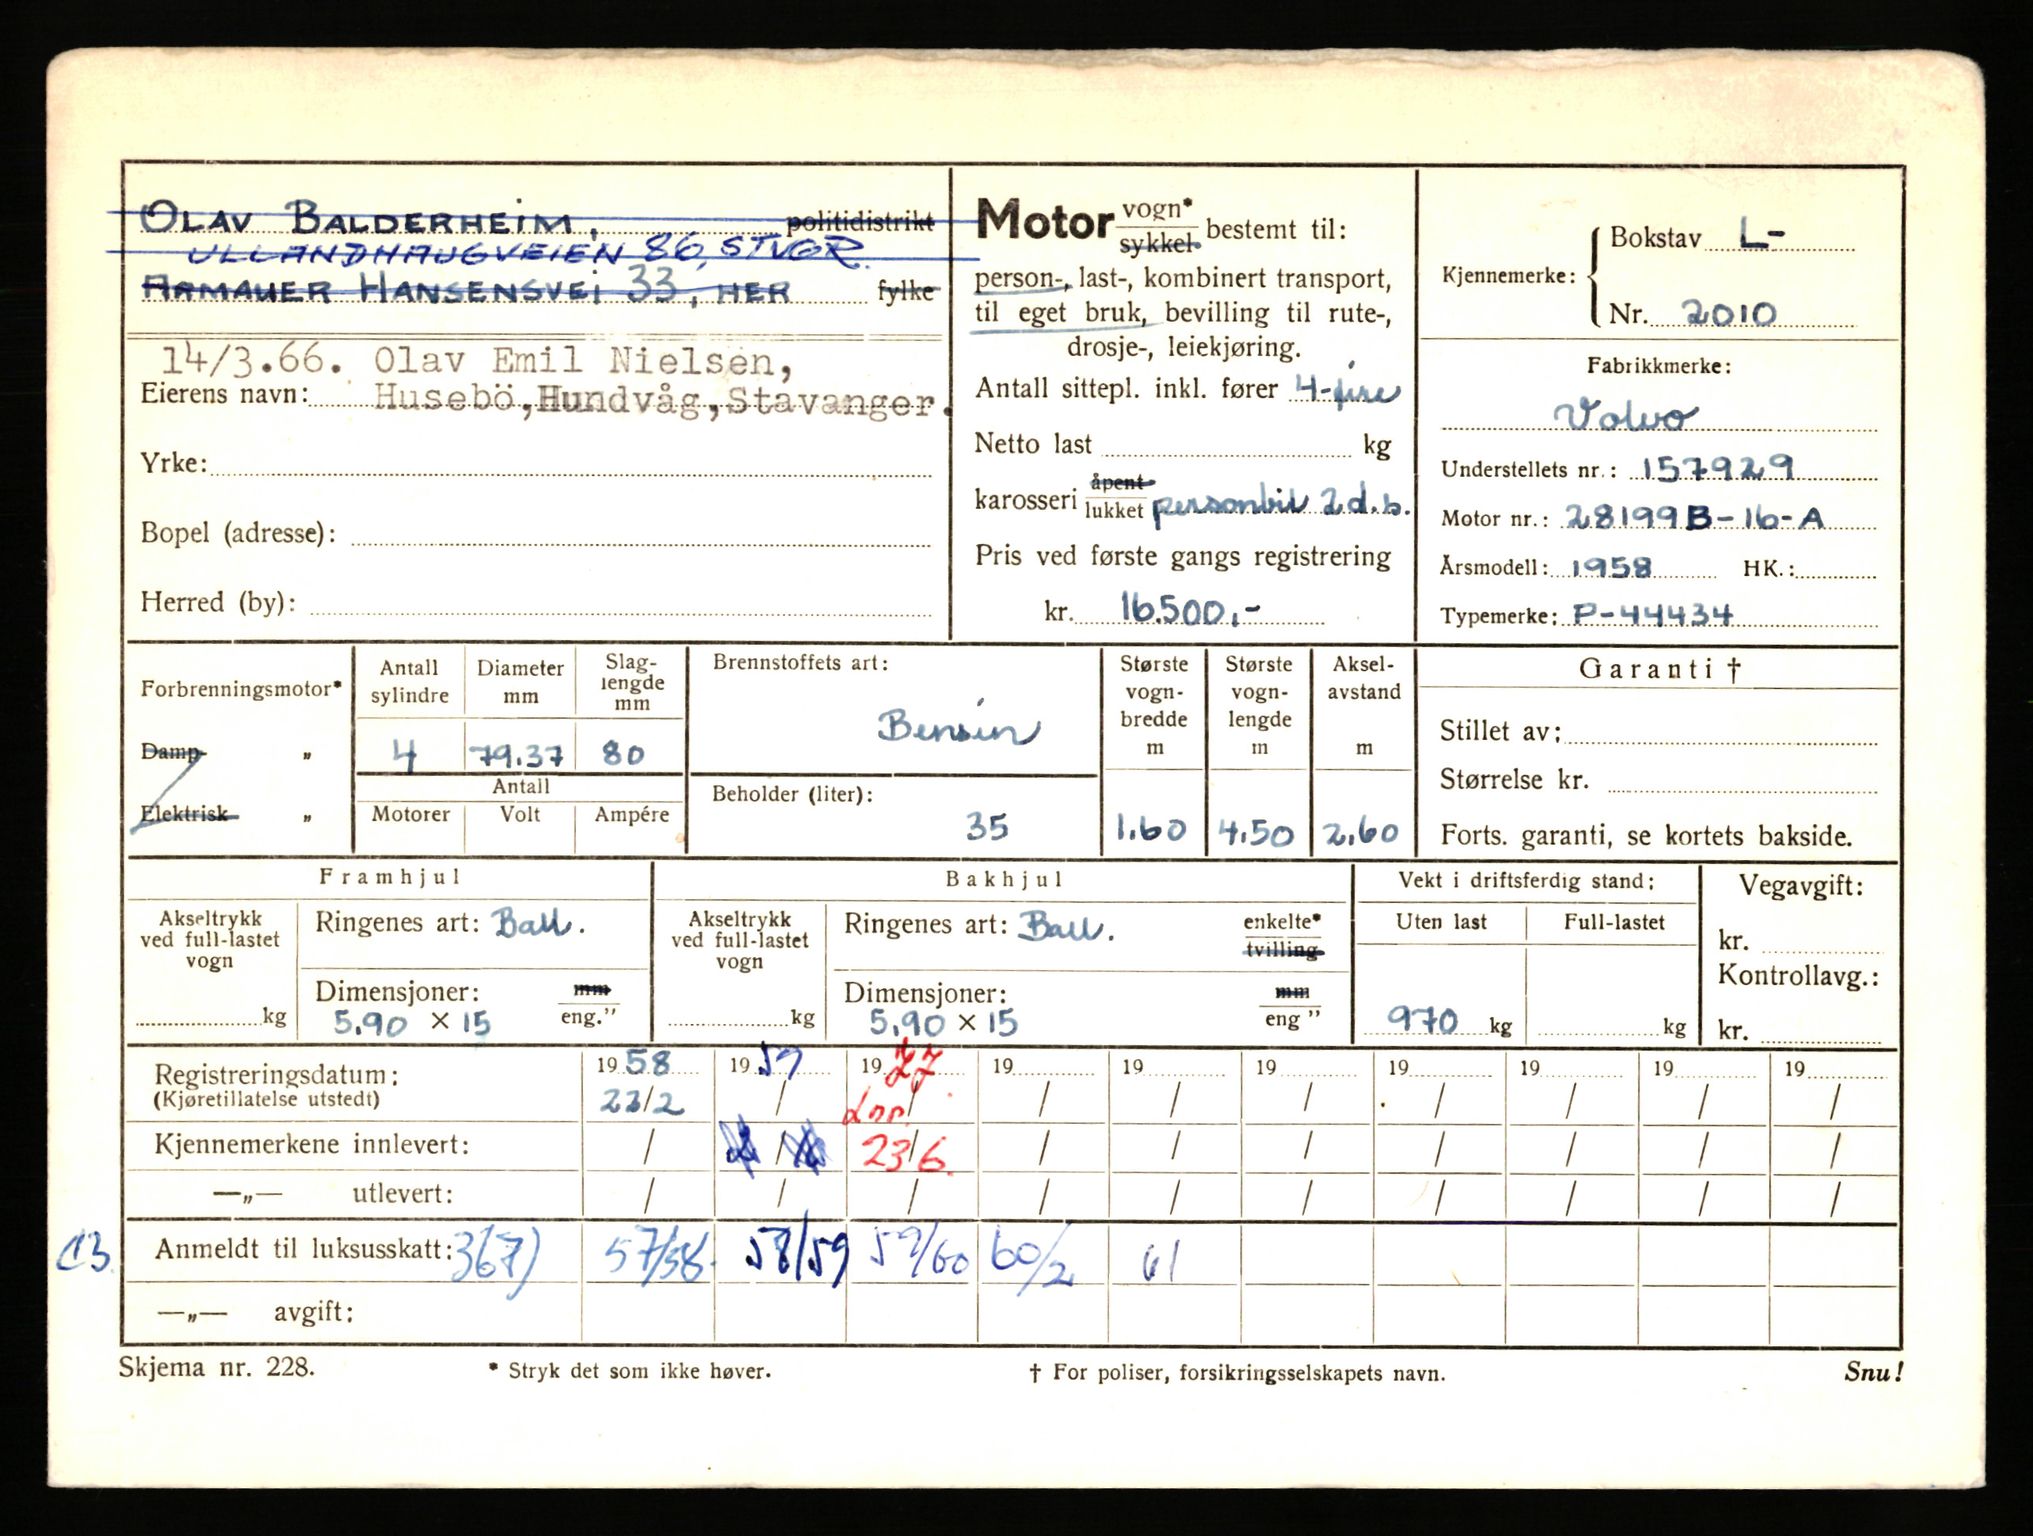 OLAV BALDERHEIM, politidistrikt
ULLANDHAUGVEIEN 86, STVGR.
ARMAUER HANSENSVEI 33, HER fylke
14/3.66. Olav Emil Nielsen,
Eierens navn: Husebö, Hundvåg, Stavanger.
Yrke:
Bopel (adresse):
Herred (by):
Motor vogn* sykkel bestemt til:
person-, last-, kombinert transport,
til eget bruk, bevilling til rute-,
drosje-, leiekjøring.
Antall sittepl. inkl. fører 4-fire
Netto last kg
karosseri åpent lukket personbil 2 d.b.
Pris ved første gangs registrering
kr. 16.500,-
Kjennemerke: Bokstav L-
Nr. 2010
Fabrikkmerke:
Volvo
Understellets nr.: 157929
Motor nr.: 28199B-16-A
Årsmodell: 1958 HK.:
Typemerke: P-44434
Forbrenningsmotor*
Damp „
Elektrisk „
Antall sylindre
Diameter mm
Slag-lengde mm
4 79.37 80
Antall
Motorer Volt Ampére
Brennstoffets art:
Bensin
Beholder (liter):
35
Største vogn-bredde m
1.60
Største vogn-lengde m
4.50
Aksel-avstand m
2.60
Garanti †
Stillet av:
Størrelse kr.
Forts. garanti, se kortets bakside.
Framhjul
Akseltrykk ved full-lastet vogn
kg
Ringenes art: Ball.
Dimensjoner: mm
5.90 × 15 eng."
Bakhjul
Akseltrykk ved full-lastet vogn
kg
Ringenes art: Ball. enkelte* tvilling
Dimensjoner: mm
5.90 × 15 eng "
Vekt i driftsferdig stand:
Uten last Full-lastet
970 kg kg
Vegavgift:
kr.
Kontrollavg.:
kr.
Registreringsdatum: 1958 1959 19 77 19 19 19 19 19 19 19
(Kjøretillatelse utstedt) 22/2 / Lnr. / / / / / / / /
Kjennemerkene innlevert: / / 23/6. / / / / / / /
—„— utlevert: / / / / / / / / / /
13 Anmeldt til luksusskatt: 367) 57/58. 58/59 59/60 60/2 61
—„— avgift:
Skjema nr. 228. * Stryk det som ikke høver. † For poliser, forsikringsselskapets navn. Snu!